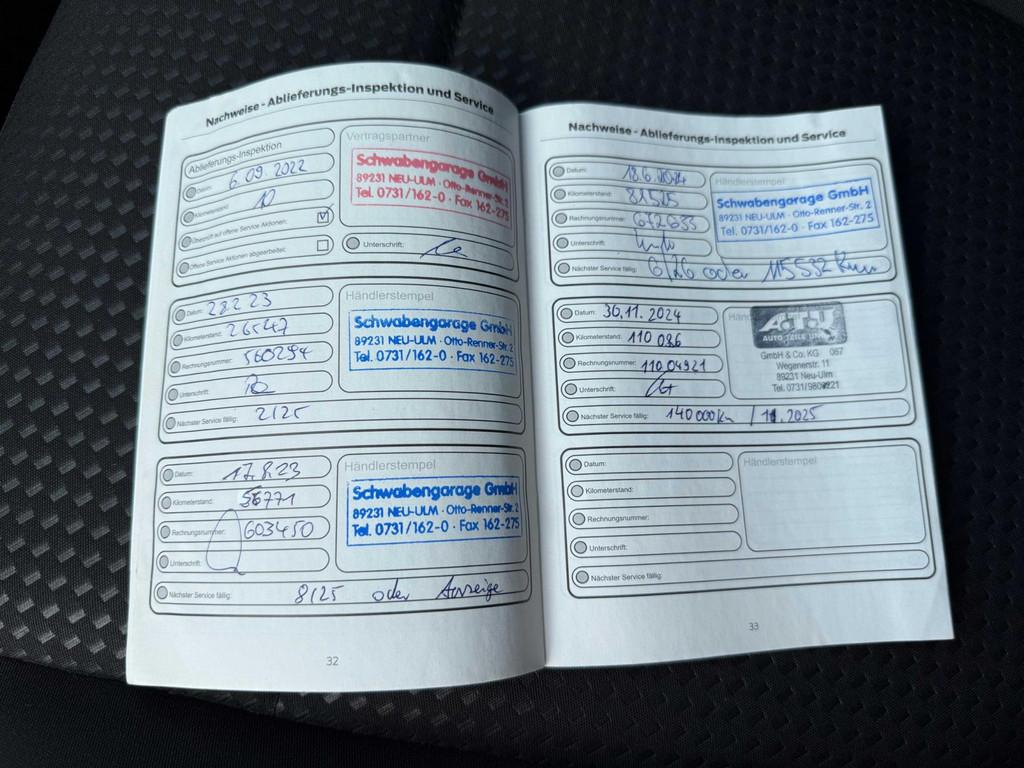 Nachweise - Ablieferungs-Inspektion und Service
Ablieferungs-Inspektion
Datum: 6.09.2022
Kilometerstand: 10
Überprüft auf offene Service Aktionen:
Offene Service Aktionen abgearbeitet:
Vertragspartner
Schwabengarage GmbH
89231 NEU-ULM · Otto-Renner-Str. 2
Tel. 0731/162-0 · Fax 162-275
Unterschrift:
Datum: 28.2.23
Kilometerstand: 26547
Rechnungsnummer: 560294
Unterschrift:
Nächster Service fällig: 2/25
Händlerstempel
Schwabengarage GmbH
89231 NEU-ULM · Otto-Renner-Str. 2
Tel. 0731/162-0 · Fax 162-275
Datum: 17.8.23
Kilometerstand: 56771
Rechnungsnummer: 603450
Unterschrift:
Nächster Service fällig: 8/25 oder Anzeige
Händlerstempel
Schwabengarage GmbH
89231 NEU-ULM · Otto-Renner-Str. 2
Tel. 0731/162-0 · Fax 162-275
32
Nachweise - Ablieferungs-Inspektion und Service
Datum: 18.6.2024
Kilometerstand: 81525
Rechnungsnummer: 672635
Unterschrift:
Nächster Service fällig: 6/26 oder 115532 Km
Händlerstempel
Schwabengarage GmbH
89231 NEU-ULM · Otto-Renner-Str. 2
Tel. 0731/162-0 · Fax 162-275
Datum: 30.11.2024
Kilometerstand: 110 086
Rechnungsnummer: 110.04921
Unterschrift:
Nächster Service fällig: 140 000 Km / 11.2025
A.T.U
AUTO TEILE
GmbH & Co. KG 067
Wegenerstr. 11
89231 Neu-Ulm
Datum:
Kilometerstand:
Rechnungsnummer:
Unterschrift:
Nächster Service fällig:
Händlerstempel
33